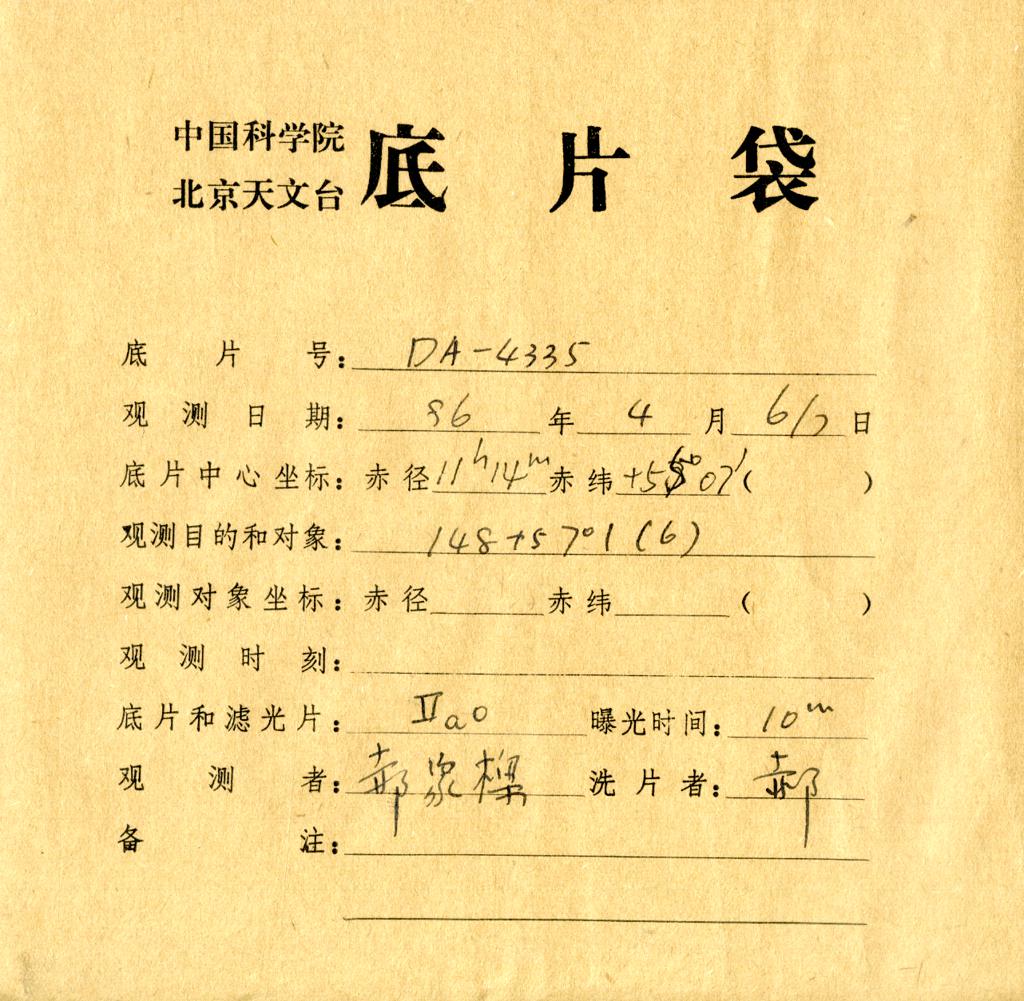 中国科学院
北京天文台
底片袋
底片号：DA-4335
观测日期：86年4月6/7日
底片中心坐标：赤径11h14m赤纬 07′（ ）
观测目的和对象：148+5701(6)
观测对象坐标：赤径 赤纬 （ ）
观测时刻：
底片和滤光片：IIaO 曝光时间：10m
观测者：郝象樑 洗片者：郝
备注：